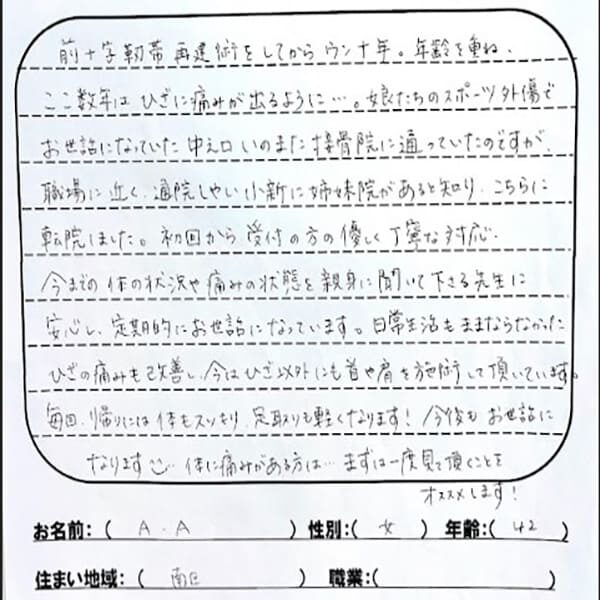 前十字靭帯再建術をしてからウン十年。年齢を重ね、
ここ数年はひざに痛みが出るように…。娘たちのスポーツ外傷で
お世話になっていた中え口いのまた接骨院に通っていたのですが、
職場に近く、通院しやい小新に姉妹院があると知り、こちらに
転院しました。初回から受付の方の優しく丁寧な対応、
今までの体の状況や痛みの状態を親身に聞いて下さる先生に
安心し、定期的にお世話になっています。日常生活もままならなかった
ひざの痛みも改善し、今はひざ以外にも首や肩を施術して頂いています。
毎回、帰りには体もスッキリ、足取りも軽くなります！今後もお世話に
なります 体に痛みがある方は…まずは一度見て頂くことを
オススメします！
お名前：（ A．A ）性別：（ 女 ）年齢：（ 42 ）
住まい地域：（ 南区 ）職業：（ ）